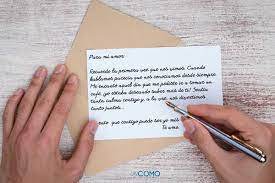 Para mi amor:
Recuerdo la primera vez que nos vimos. Cuando
hablamos parecía que nos conocíamos desde siempre.
Me encantó aquel día que me pediste ir a tomar un
café, yo estaba deseando saber más de ti! Sentía
tanta calma contigo y, a la vez, nos divertimos
tanto juntos...
siento que contigo puedo ser yo mis
Te amo
UNCOMO